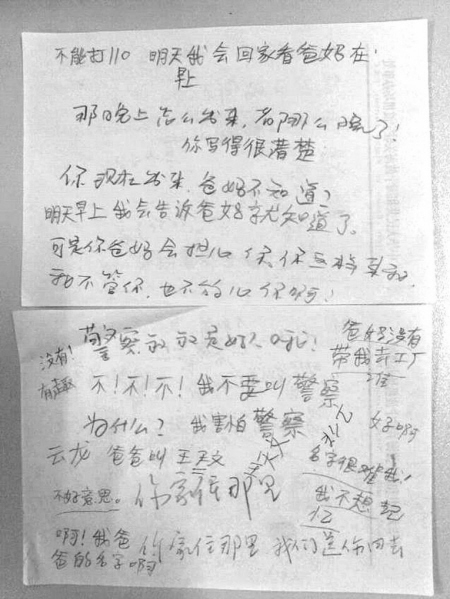 不能打110 明天我会回家看爸妈在
早上
那晚上怎么出来,都那么晚了!
你写得很清楚
你现在出来,爸妈不知道?
明天早上我会告诉爸妈就知道了。
可是你爸妈会担心
我不管你,也不
警察叔叔是好人
没有!
有趣
爸妈没有
带我去工厂
不!不!不!我不要叫警察
为什么? 我害怕警察
好啊
云龙 爸爸叫王天文
名字很难
我不想记
忆
不好意思。
你家住那里
啊!我爸
爸的名字啊
你家住那里 我们送你回去